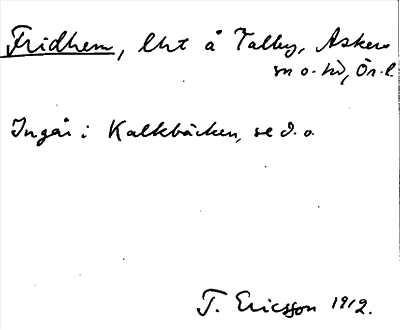 Fridhem, lht å Talby, Askers
sn o. hd, Ör. l.
Ingår i Kalkbäcken, se d. o.
T. Ericsson 1912.